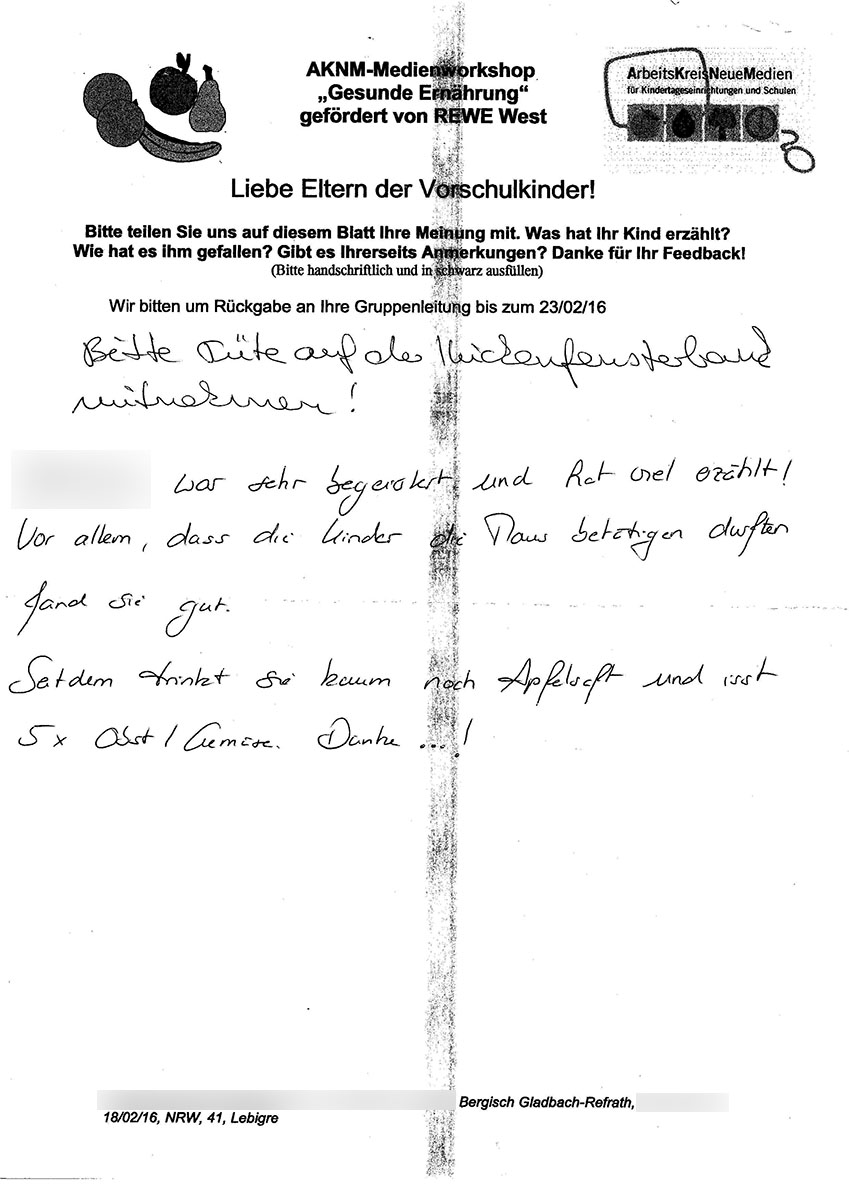 AKNM-Medienworkshop
„Gesunde Ernährung“
gefördert von REWE West
ArbeitsKreisNeueMedien
für Kindertageseinrichtungen und Schulen
Liebe Eltern der Vorschulkinder!
Bitte teilen Sie uns auf diesem Blatt Ihre Meinung mit. Was hat Ihr Kind erzählt?
Wie hat es ihm gefallen? Gibt es Ihrerseits Anmerkungen? Danke für Ihr Feedback!
(Bitte handschriftlich und in schwarz ausfüllen)
Wir bitten um Rückgabe an Ihre Gruppenleitung bis zum 23/02/16
Bitte Tüte auf der
mitnehmen!
war sehr begeistert und hat viel erzählt!
Vor allem, dass die Kinder die Maus betätigen durften
fand sie gut.
Seitdem trinkt sie kaum noch Apfelsaft und isst
5x Obst / Gemüse. Danke ...!
Bergisch Gladbach-Refrath,
18/02/16, NRW, 41, Lebigre